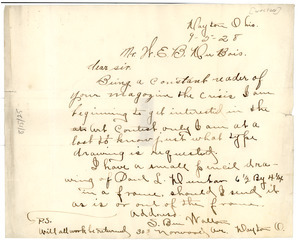 Dayton Ohio.
9-5-25
Mr. W. E. B. Du Bois.
Dear sir.
Being a constant reader of
your magazine the Crisis I am
beginning to get interested in the
Contest only I am at a
lost to know just what type
drawing is requested.
I have a small pencil dra-
wing of Paul L. Dunbar 6 1/2 By 4 1/4
in a frame, should I send it
as is or out of the frame.
Address
P.S. S. B. Wallace
Will all work be returned 30 Norwood Ave. Dayton O.